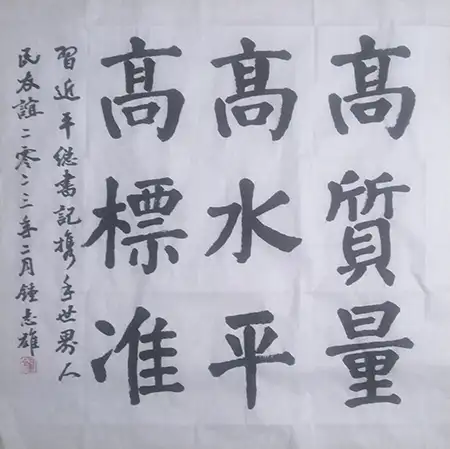 髙質量
髙水平
髙標准
習近平總書記携手世界人
民友誼二零二三年二月鍾志雄